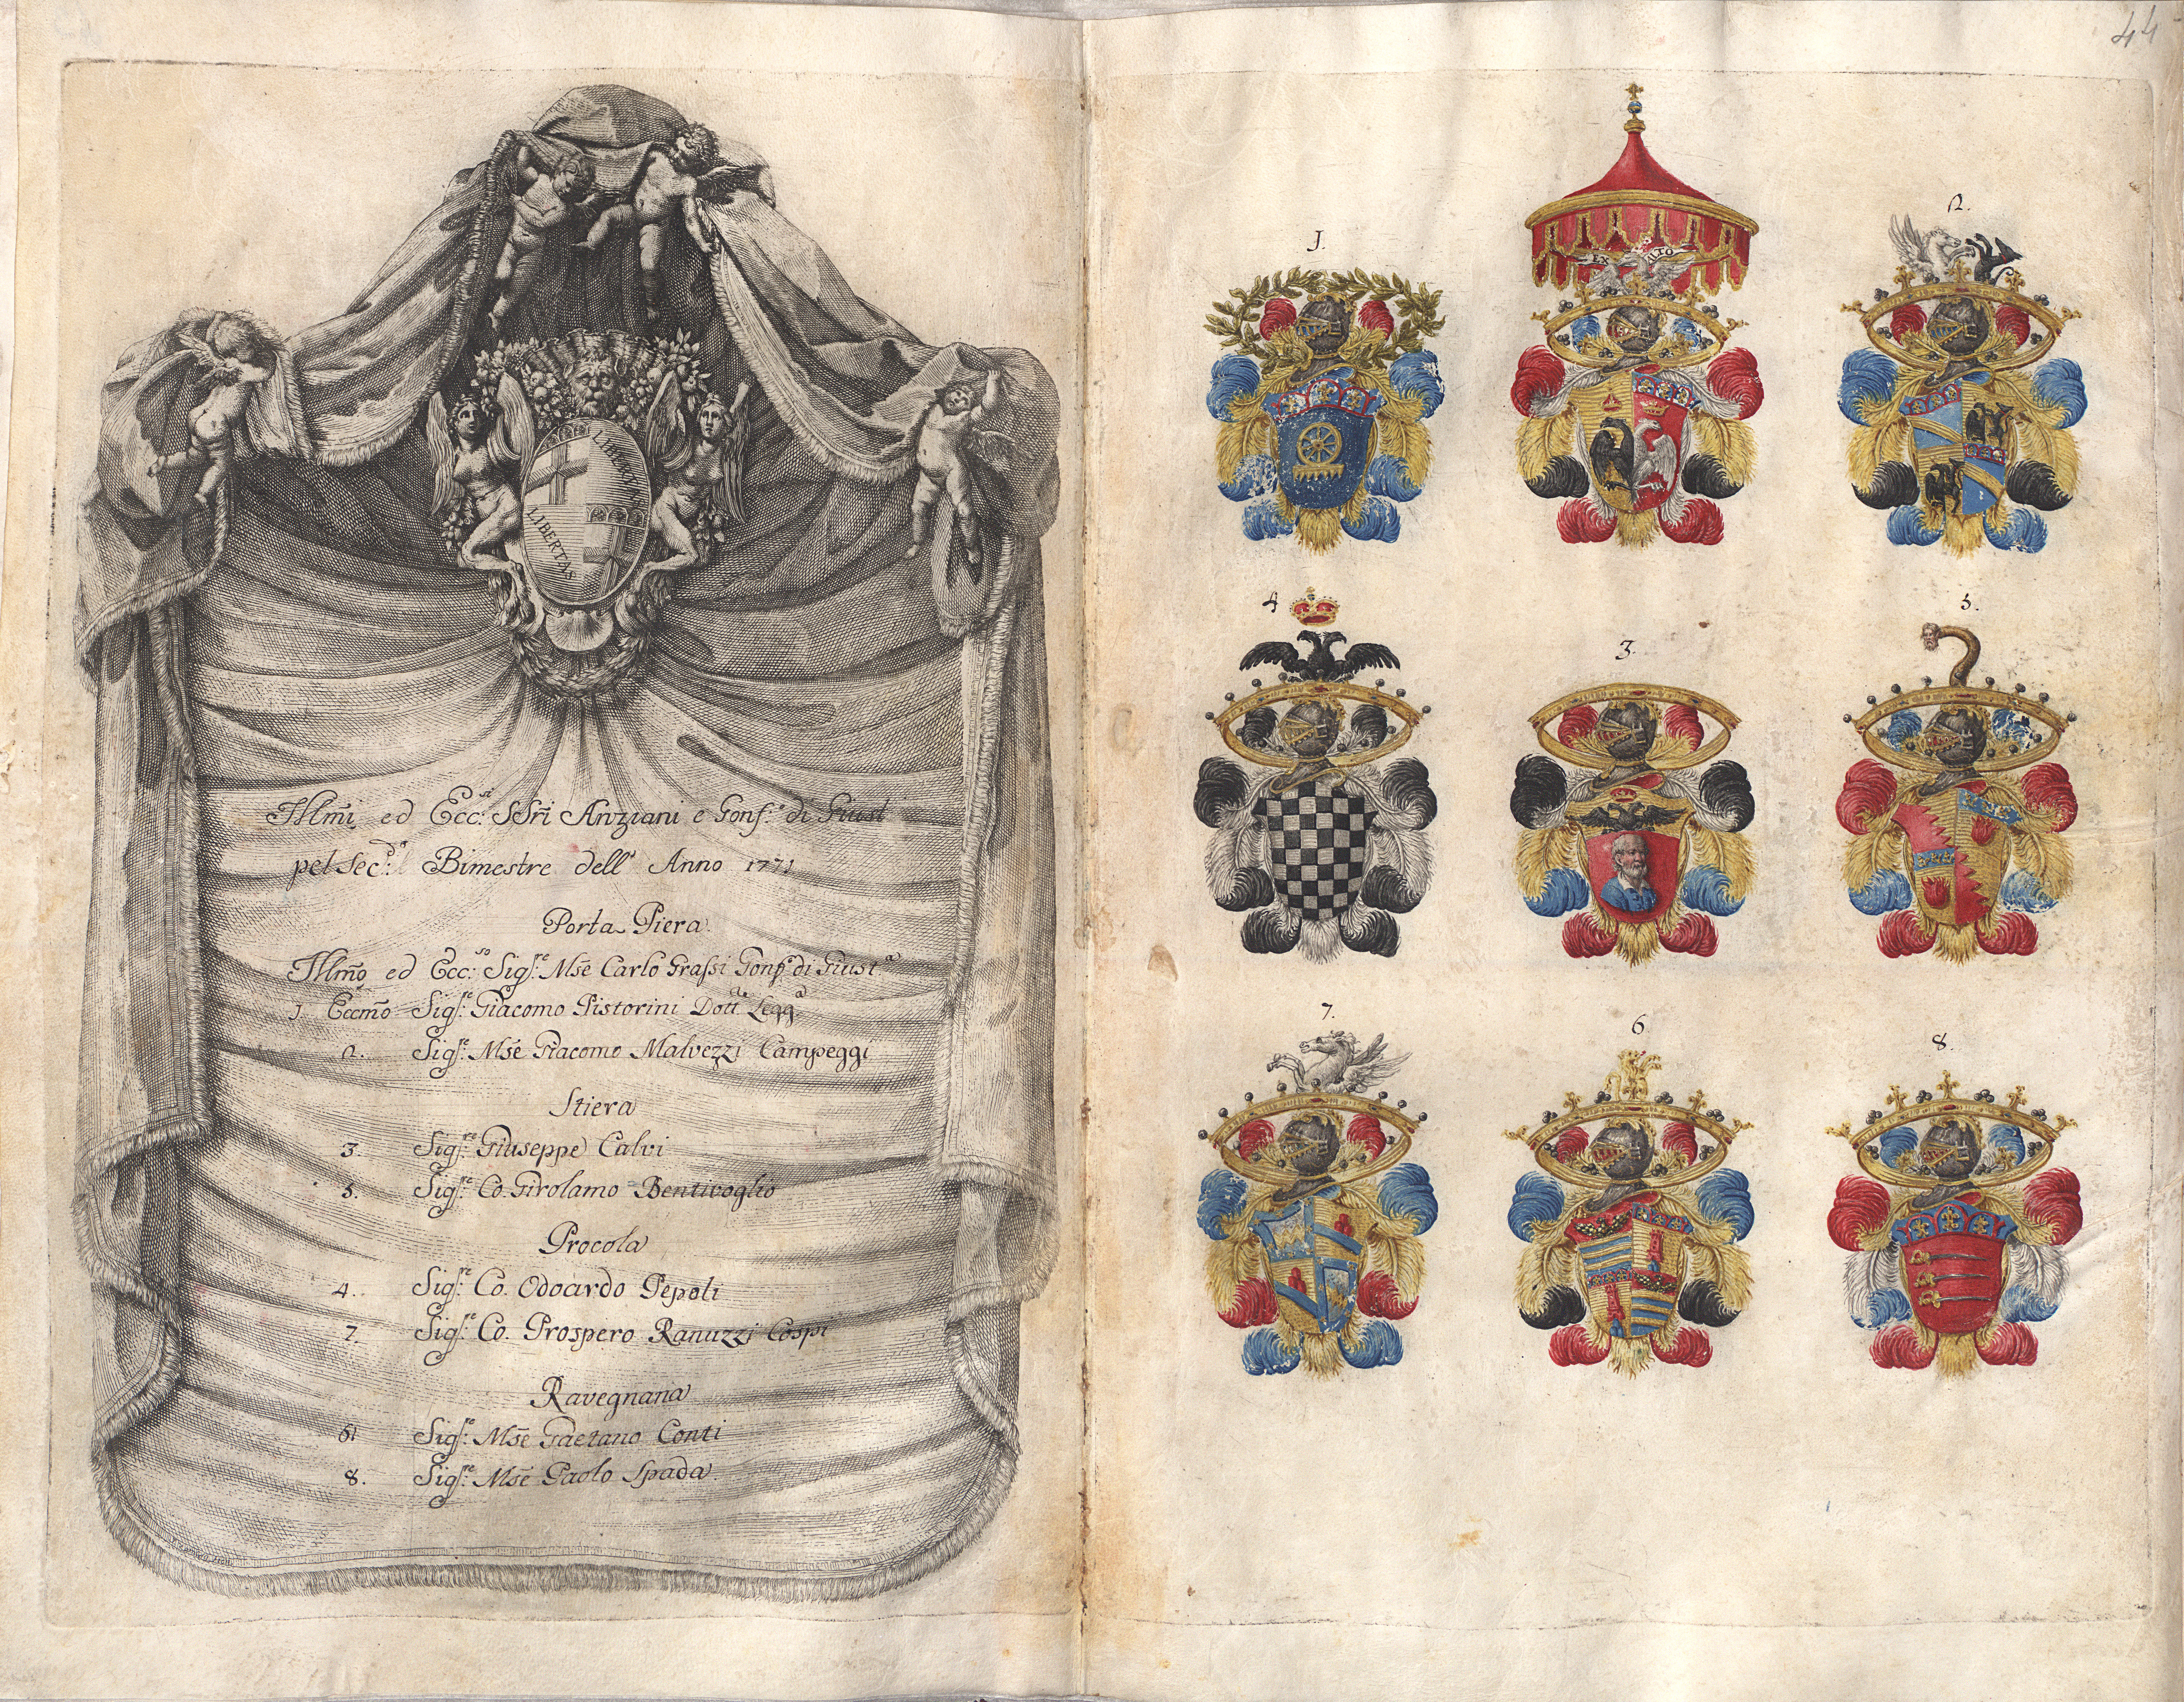 LIBERTAS
LIBERTAS
Illm̃i ed Ecc:si SSri Anziani e Gonf:e di Giust
pel sec:do Bimestre dell' Anno 1771
Porta Piera.
Illm̃o ed Ecc:so Sig:re Mse Carlo Grassi Gonf:e di Giust:a
1. Eccm̃o Sig:re Giacomo Pistorini Dott:e Legg:a
2. Sig:re Mse Giacomo Malvezzi Campeggi
Stiera
3. Sig:re Giuseppe Calvi
5. Sig:re Co. Girolamo Bentivoglio
Procola
4. Sig:re Co. Odoardo Pepoli
7. Sig:re Co. Prospero Ranuzzi Cospi
Ravegnana
6. Sig:re Mse Gaetano Conti
8. Sig:re Mse Paolo Spada.
44
1.
EX ALTO
2.
4
3.
5.
7.
6
8.